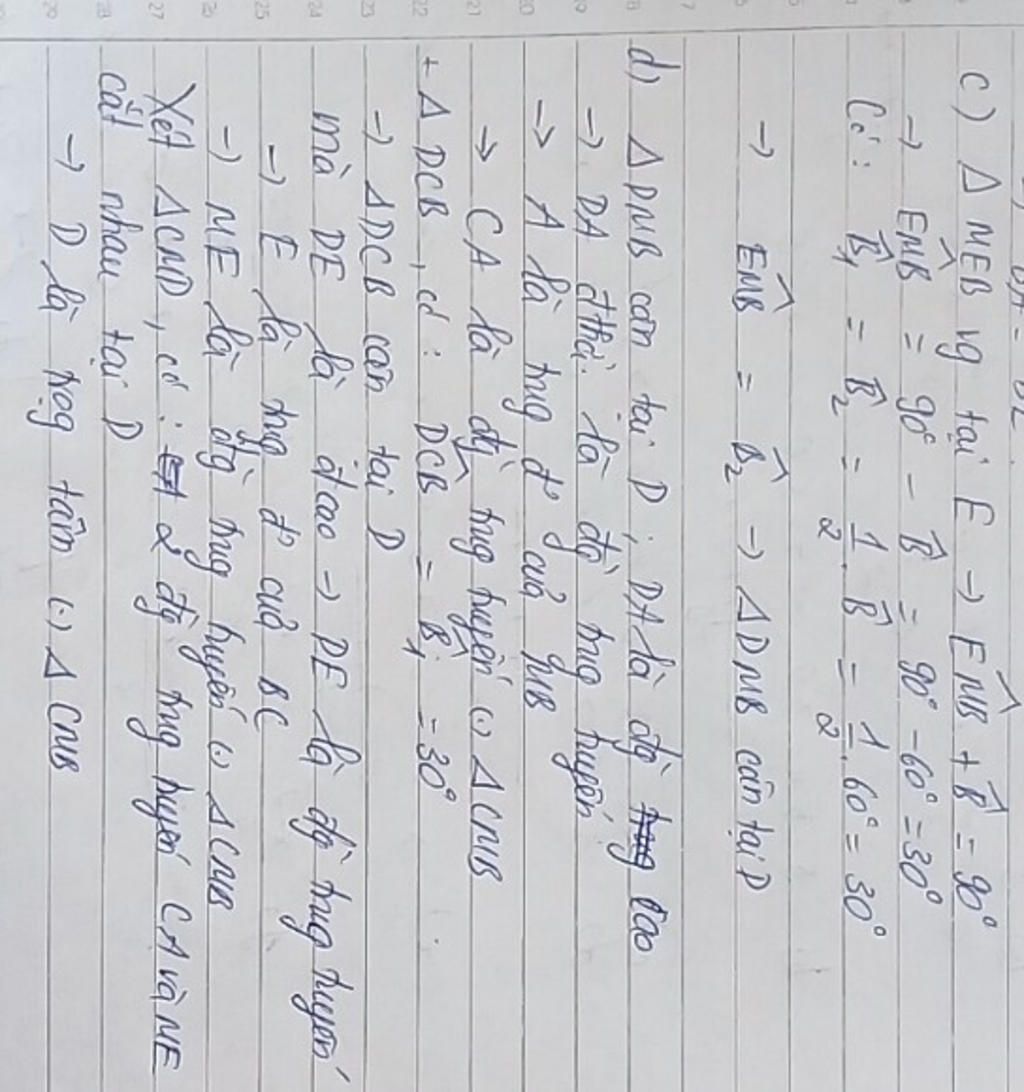 c) Δ MEB vg tại E → EMB + B = 90°
→ EMB = 90° - B = 90° - 60° = 30°
Có: B1 = B2 = 1/2 . B = 1/2 . 60° = 30°
→ EMB = B2 → Δ DMB cân tại D
d) Δ DMB cân tại D, DA là đg cao
→ DA đthời là đg trug tuyến
→ A là trug đ' của MB
→ CA là đg trug tuyến (.) Δ CMB
+ Δ DCB, có: DCB = B1 = 30°
→ Δ DCB cân tại D
mà DE là đ cao → DE là đg trug tuyến
→ E là trug đ' của BC
→ ME là đg trug tuyến (.) Δ CMB
Xét Δ CMD, có: 2 đg trug tuyến CA và ME
cắt nhau tại D
→ D là trọg tâm (.) Δ CMB
20
21
22
23
24
25
26
27
28
29